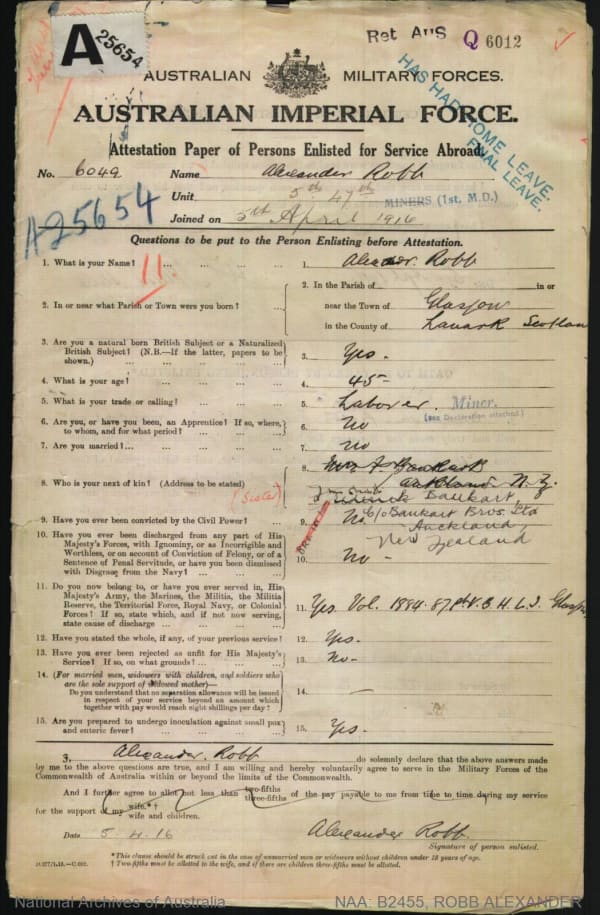 A 25654
Ret AUS Q 6012
HAS HAD HOME LEAVE.
FINAL LEAVE.
AUSTRALIAN MILITARY FORCES.
AUSTRALIAN IMPERIAL FORCE.
Attestation Paper of Persons Enlisted for Service Abroad.
No. 6049 Name Alexander Robb
Unit 5th 47th MINERS (1st. M.D.)
A25654
Joined on 5th April 1916
Questions to be put to the Person Enlisting before Attestation.
1. What is your Name? ... ... ... ... 1. Alexander Robb
11.
2. In or near what Parish or Town were you born? ... 2. In the Parish of in or
near the Town of Glasgow
in the County of Lanark Scotland
3. Are you a natural born British Subject or a Naturalized
British Subject? (N.B.—If the latter, papers to be
shown.) ... ... ... 3. Yes.
4. What is your age? ... ... ... ... 4. 45
5. What is your trade or calling? ... ... ... 5. Laborer. Miner.
(see Declaration attached)
6. Are you, or have you been, an Apprentice? If so, where,
to whom, and for what period? ... ... ... 6. No
7. Are you married?... ... ... ... 7. No
8. Who is your next of kin? (Address to be stated) ... 8. Mrs F Bankart
Auckland N.Z.
(Sister) Bankart,
9. Have you ever been convicted by the Civil Power? ... 9. No C/o Bankart Bros. Ltd
Auckland,
New Zealand
10. Have you ever been discharged from any part of His
Majesty's Forces, with Ignominy, or as Incorrigible and
Worthless, or on account of Conviction of Felony, or of a
Sentence of Penal Servitude, or have you been dismissed
with Disgrace from the Navy? ... ... 10. No -
11. Do you now belong to, or have you ever served in, His
Majesty's Army, the Marines, the Militia, the Militia
Reserve, the Territorial Force, Royal Navy, or Colonial
Forces? If so, state which, and if not now serving,
state cause of discharge ... ... ... 11. Yes. Vol. 1884.87 H.L.I. Glasgow
12. Have you stated the whole, if any, of your previous service? 12. Yes.
13. Have you ever been rejected as unfit for His Majesty's
Service? If so, on what grounds? ... ... 13. No-
14. (For married men, widowers with children, and soldiers who
are the sole support of widowed mother)—
Do you understand that no separation allowance will be issued
in respect of your service beyond an amount which
together with pay would reach eight shillings per day? 14. —
15. Are you prepared to undergo inoculation against small pox
and enteric fever? ... ... ... 15. Yes.
3. Alexander Robb do solemnly declare that the above answers made
by me to the above questions are true, and I am willing and hereby voluntarily agree to serve in the Military Forces of the
Commonwealth of Australia within or beyond the limits of the Commonwealth.
And I further agree to allot not less than two-fifths
three-fifths of the pay payable to me from time to time during my service
for the support of my wife.*†
wife and children.
Date 5.4.16 Alexander Robb.
Signature of person enlisted.
*This clause should be struck out in the case of unmarried men or widowers without children under 18 years of age.
† Two-fifths must be allotted to the wife, and if there are children three-fifths must be allotted.
National Archives of Australia NAA: B2455, ROBB ALEXANDER